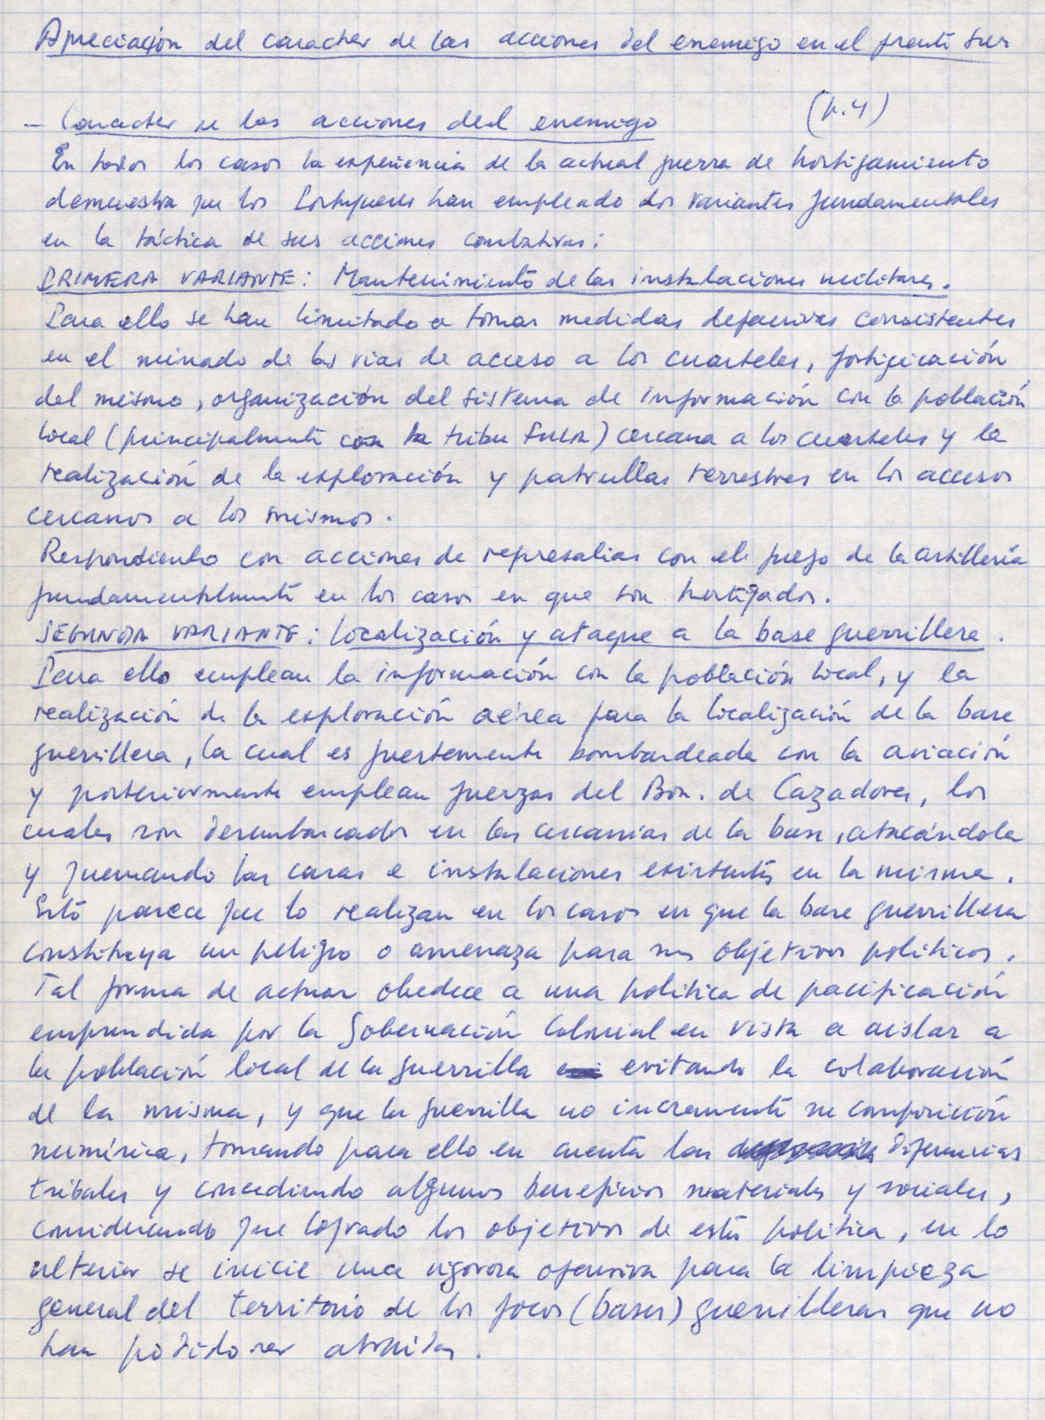 Apreciación del caracter de las acciones del enemigo en el frente Sur
(p.4)
- Caracter de las acciones del enemigo
En todos los casos la experiencia de la actual guerra de hostigamiento
demuestra que los Portugueses han empleado dos variantes fundamentales
en la táctica de sus acciones combativas:
PRIMERA VARIANTE: Mantenimiento de las instalaciones militares.
Para ello se han limitado a tomar medidas defensivas consistentes
en el minado de las vias de acceso a los cuarteles, fortificación
del mismo, organización del sistema de información con la población
local (principalmente con la tribu FULA) cercana a los cuarteles y la
realización de la exploración y patrullas terrestres en los accesos
cercanos a los mismos.
Respondiendo con acciones de represalias con el fuego de la artillería
fundamentalmente en los casos en que son hostigados.
SEGUNDA VARIANTE: localización y ataque a la base guerrillera.
Para ello emplean la información con la población local, y la
realización de la exploración aérea para la localización de la base
guerrillera, la cual es fuertemente bombardeada con la aviación
y posteriormente emplean fuerzas del Bon. de Cazadores, los
cuales son desembarcados en las cercanias de la base, atacándola
y quemando las casas e instalaciones existentes en la misma.
Esto parece que lo realizan en los casos en que la base guerrillera
constituya un peligro o amenaza para sus objetivos politicos.
Tal forma de actuar obedece a una politica de pacificación
emprendida por la Gobernación Colonial en vista a aislar a
la población local de la guerrilla evitando la colaboración
de la misma, y que la guerrilla no incremente su composición
numérica, tomando para ello en cuenta las diferencias
tribales y concediendo algunos beneficios materiales y sociales,
considerando que logrado los objetivos de esta politica, en lo
ulterior se inicie una vigorosa ofensiva para la limpieza
general del territorio de los focos (bases) guerrilleras que no
han podido ser atraidas.